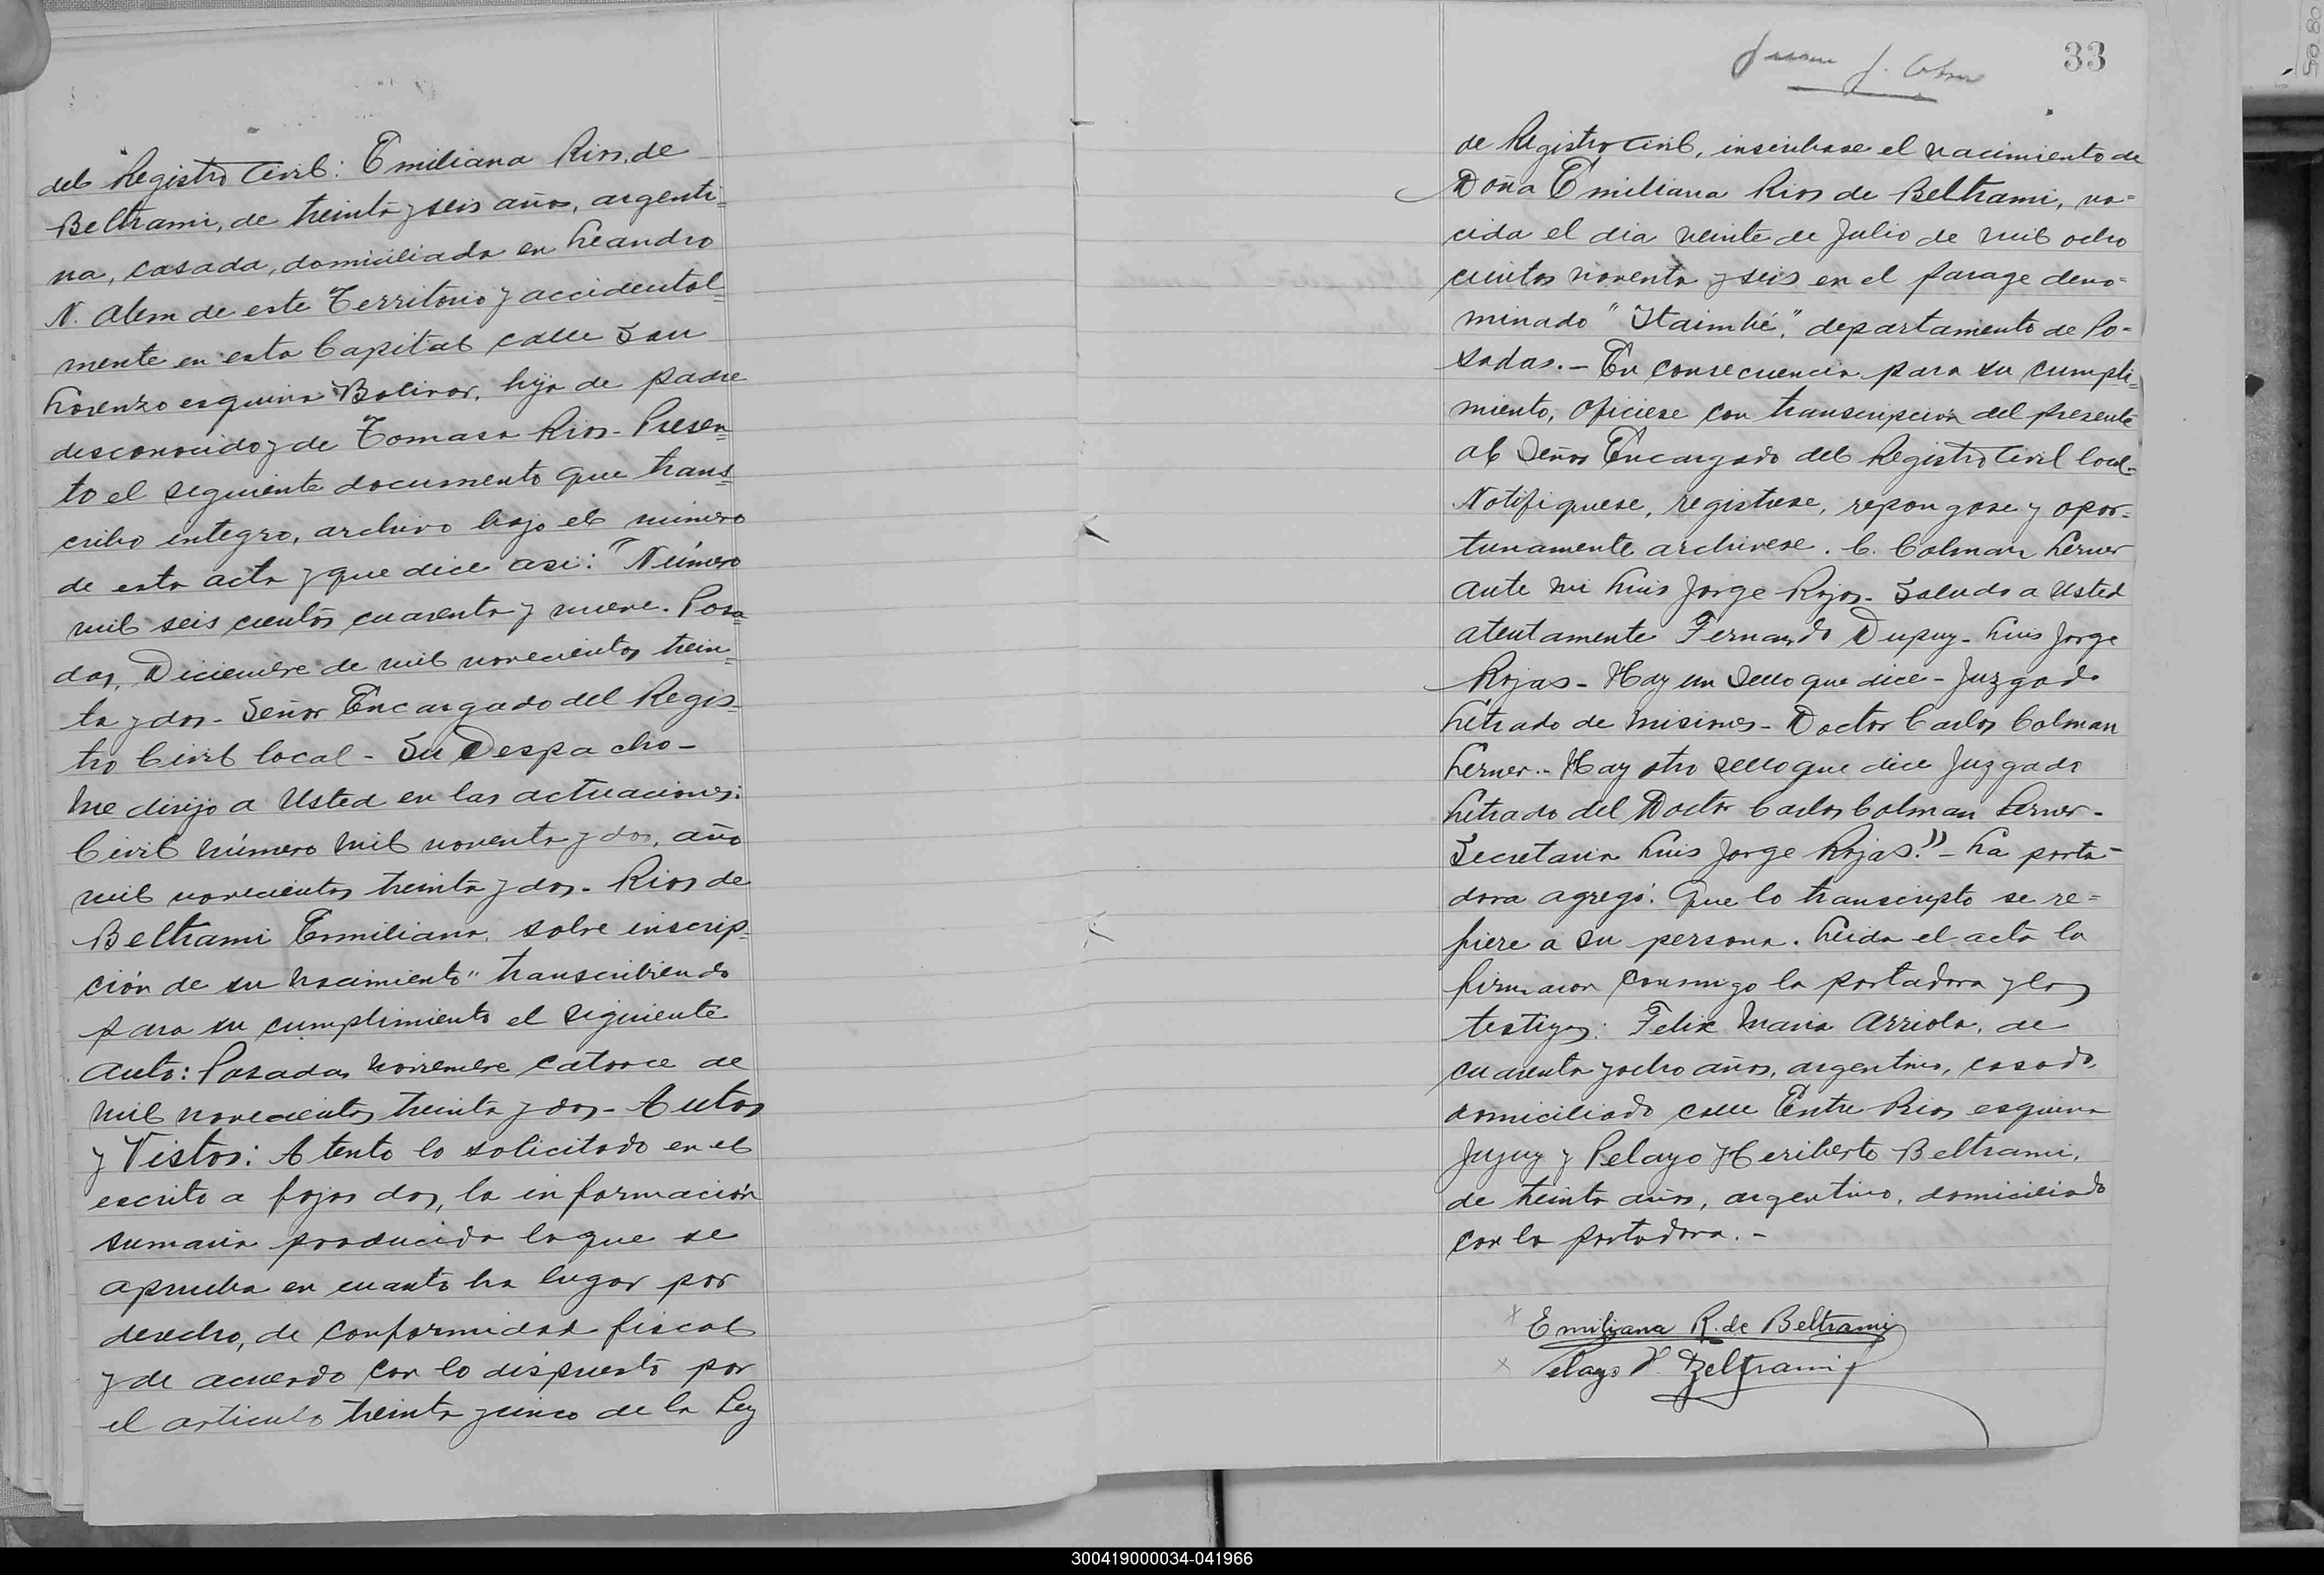 del Registro Civil: Emiliana Rios de
Beltrami, de treinta y seis años, argenti=
na, casada, domiciliada en Leandro
N. Alem de este Territorio y accidental=
mente en esta Capital calle San
Lorenzo esquina Bolivar, hija de padre
desconocido y de Tomasa Rios - Presen=
to el siguiente documento que trans=
cribo integro, archivo bajo el número
de esta acta y que dice asi: "Número
mil seis cientos cuarenta y nueve. Posa=
das, Diciembre de mil novecientos trein=
ta y dos - Señor Encargado del Regis=
tro Civil local - Su Despacho -
Me dirijo a Usted en las actuaciones:
Civil número mil noventa y dos, año
mil novecientos treinta y dos - Rios de
Beltrami Emiliana, sobre inscrip=
ción de su nacimiento" transcribiendo
para su cumplimiento el siguiente
auto: Posadas Noviembre catorce de
mil novecientos treinta y dos - Autos
y Vistos: Atento lo solicitado en el
escrito a fojas dos, la información
sumaria producida la que se
aprueba en cuanto ha lugar por
derecho, de conformidad fiscal
y de acuerdo con lo dispuesto por
el articulo treinta y cinco de la Ley
33
de Registro Civil, inscribase el nacimiento de
Doña Emiliana Rios de Beltrami, na=
cida el dia veinte de Julio de mil ocho
cientos noventa y seis en el parage deno=
minado "Itaimbé," departamento de Po=
sadas. - En consecuencia para su cumpli=
miento, oficiese con transcripción del presente
al Señor Encargado del Registro Civil local-
Notifiquese, registrese, repongase y opor=
tunamente archivese. C. Colman Lerner
Ante mi Luis Jorge Rojas - Saludo a Usted
atentamente Fernando Dupuy - Luis Jorge
Rojas - Hay un sello que dice - Juzgado
Letrado de Misiones - Doctor Carlos Colman
Lerner. - Hay otro sello que dice Juzgado
Letrado del Doctor Carlos Colman Lerner -
Secretaria Luis Jorge Rojas." - La porta-
dora agregó: Que lo transcripto se re=
fiere a su persona. Leida el acta la
firmaron conmigo la portadora y los
testigos: Felix Maria Arriola, de
cuarenta y ocho años, argentino, casado,
domiciliado calle Entre Rios esquina
Jujuy y Pelayo Heriberto Beltrami,
de treinta años, argentino, domiciliado
con la portadora. -
Emiliana R. de Beltrami
Pelayo H. Beltrami
300419000034-041966